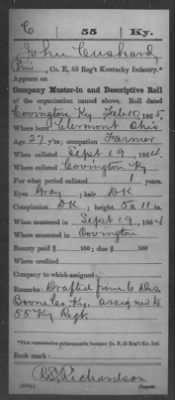 C 55 Ky.
John Cushard
Co. E, 55 Reg't Kentucky Infantry.*
Appears on
Company Muster-in and Descriptive Roll
of the organization named above. Roll dated
Covington, Ky Feb 10, 1865.
Where born Clermont Ohio
Age 27 y'rs; occupation Farmer
When enlisted Sept 19, 1864.
Where enlisted Covington Ky
For what period enlisted 1 years.
Eyes Gray; hair DK
Complexion DK; height 5 ft. 11 in.
When mustered in Sept 19, 1864
Where mustered in Covington
Bounty paid $ 100; due $ 100
Where credited
Company to which assigned
Remarks: Drafted from
Boone Co. Ky. assigned to
55 Ky Regt.
*This organization subsequently became Co. E, 55 Reg't Ky. Inf.
Book mark:
Richardson
Copyist.